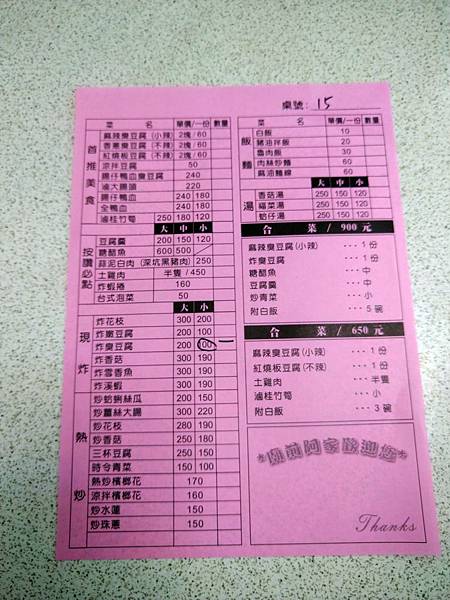 桌號: 15
菜 名 單價/一份 數量
首推美食
麻辣臭豆腐 (小辣) 2塊/60
香蔥臭豆腐 (不辣) 2塊/60
紅燒板豆腐 (不辣) 2塊/60
涼拌豆腐 50
腸仔鴨血臭豆腐 240
滷大腸頭 220
腸仔鴨血 240 180
全鴨血 240 180
滷桂竹筍 250 180 120
大 中 小
按讚必點
豆腐羹 200 150 120
糖醋魚 600 500
蒜泥白肉 (深坑黑豬肉) 250
土雞肉 半隻/450
炸蝦捲 160
台式泡菜 50
大 小
現炸
炸花枝 300 200
炸嫩豆腐 200 100
炸臭豆腐 200 100 一
炸香菇 300 190
炸雪香魚 300 190
炸溪蝦 300 190
熱炒
炒蛤蜊絲瓜 200 150
炒薑絲大腸 300 220
炒花枝 280 190
炒香菇 250 180
三杯豆腐 250 150
時令青菜 150 100
熱炒檳榔花 170
涼拌檳榔花 160
炒水蓮 150
炒珠蔥 150
菜 名 單價/一份 數量
飯麵
白飯 10
豬油拌飯 20
魯肉飯 30
肉絲炒麵 60
麻油麵線 60
大 中 小
湯
香菇湯 250 150 120
福菜湯 250 150 120
蛤仔湯 250 150 120
合 菜 / 900 元
麻辣臭豆腐(小辣) ···1 份
炸臭豆腐 ···1 份
糖醋魚 ···中
豆腐羹 ···中
炒青菜 ···小
附白飯 ···5 碗
合 菜 / 650 元
麻辣臭豆腐(小辣) ···1 份
紅燒板豆腐(不辣) ···1 份
土雞肉 ···半隻
滷桂竹筍 ···小
附白飯 ···3 碗
*廟前阿家歡迎您*
Thanks